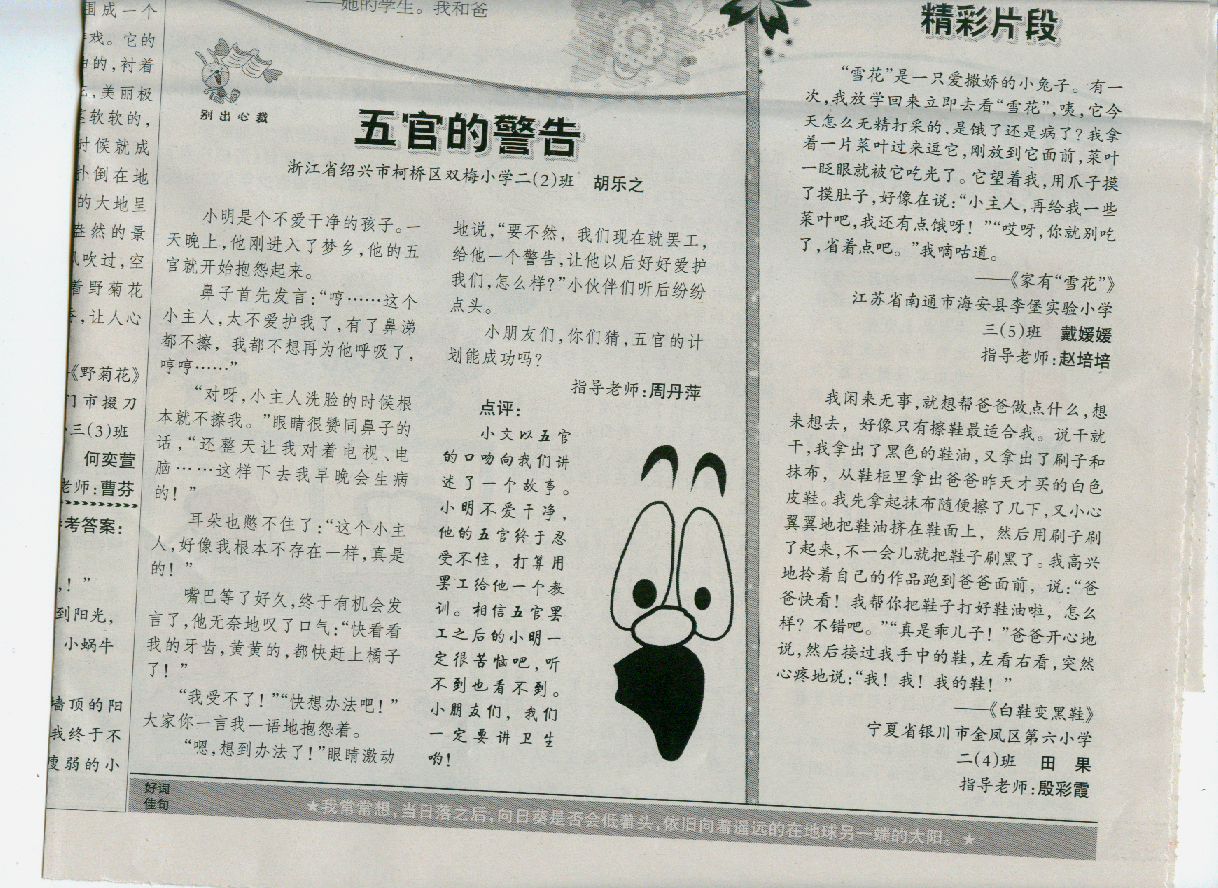 ——她的学生。我和爸
围成一个
戏。它的
的,衬着
,美丽极
软软的,
时候就成
扑倒在地
的大地呈
盎然的景
风吹过,空
着野菊花
,让人心
《野菊花》
门市掇刀
三(3)班
何奕萱
老师:曹芬
参考答案:
,!”
到阳光,
小蜗牛
墙顶的阳
我终于不
瘦弱的小
别出心裁
五官的警告
浙江省绍兴市柯桥区双梅小学二(2)班 胡乐之
小明是个不爱干净的孩子。一
天晚上,他刚进入了梦乡,他的五
官就开始抱怨起来。
鼻子首先发言:“哼……这个
小主人,太不爱护我了,有了鼻涕
都不擦,我都不想再为他呼吸了,
哼哼……”
“对呀,小主人洗脸的时候根
本就不擦我。”眼睛很赞同鼻子的
话,“还整天让我对着电视、电
脑……这样下去我早晚会生病
的!”
耳朵也憋不住了:“这个小主
人,好像我根本不存在一样,真是
的!”
嘴巴等了好久,终于有机会发
言了,他无奈地叹了口气:“快看看
我的牙齿,黄黄的,都快赶上橘子
了!”
“我受不了!”“快想办法吧!”
大家你一言我一语地抱怨着。
“嗯,想到办法了!”眼睛激动
地说,“要不然,我们现在就罢工,
给他一个警告,让他以后好好爱护
我们,怎么样?”小伙伴们听后纷纷
点头。
小朋友们,你们猜,五官的计
划能成功吗?
指导老师:周丹萍
点评:
小文以五官
的口吻向我们讲
述了一个故事。
小明不爱干净,
他的五官终于忍
受不住,打算用
罢工给他一个教
训。相信五官罢
工之后的小明一
定很苦恼吧,听
不到也看不到。
小朋友们,我们
一定要讲卫生
哟!
精彩片段
“雪花”是一只爱撒娇的小兔子。有一
次,我放学回来立即去看“雪花”,咦,它今
天怎么无精打采的,是饿了还是病了?我拿
着一片菜叶过来逗它,刚放到它面前,菜叶
一眨眼就被它吃光了。它望着我,用爪子摸
了摸肚子,好像在说:“小主人,再给我一些
菜叶吧,我还有点饿呀!”“哎呀,你就别吃
了,省着点吧。”我嘀咕道。
——《家有“雪花”》
江苏省南通市海安县李堡实验小学
三(5)班 戴媛媛
指导老师:赵培培
我闲来无事,就想帮爸爸做点什么,想
来想去,好像只有擦鞋最适合我。说干就
干,我拿出了黑色的鞋油,又拿出了刷子和
抹布,从鞋柜里拿出爸爸昨天才买的白色
皮鞋。我先拿起抹布随便擦了几下,又小心
翼翼地把鞋油挤在鞋面上,然后用刷子刷
了起来,不一会儿就把鞋子刷黑了。我高兴
地拎着自己的作品跑到爸爸面前,说:“爸
爸快看!我帮你把鞋子打好鞋油啦,怎么
样?不错吧。”“真是乖儿子!”爸爸开心地
说,然后接过我手中的鞋,左看右看,突然
心疼地说:“我!我!我的鞋!”
——《白鞋变黑鞋》
宁夏省银川市金凤区第六小学
二(4)班 田果
指导老师:殷彩霞
好词
佳句
★我常常想,当日落之后,向日葵是否会低着头,依旧向着遥远的在地球另一端的太阳。★